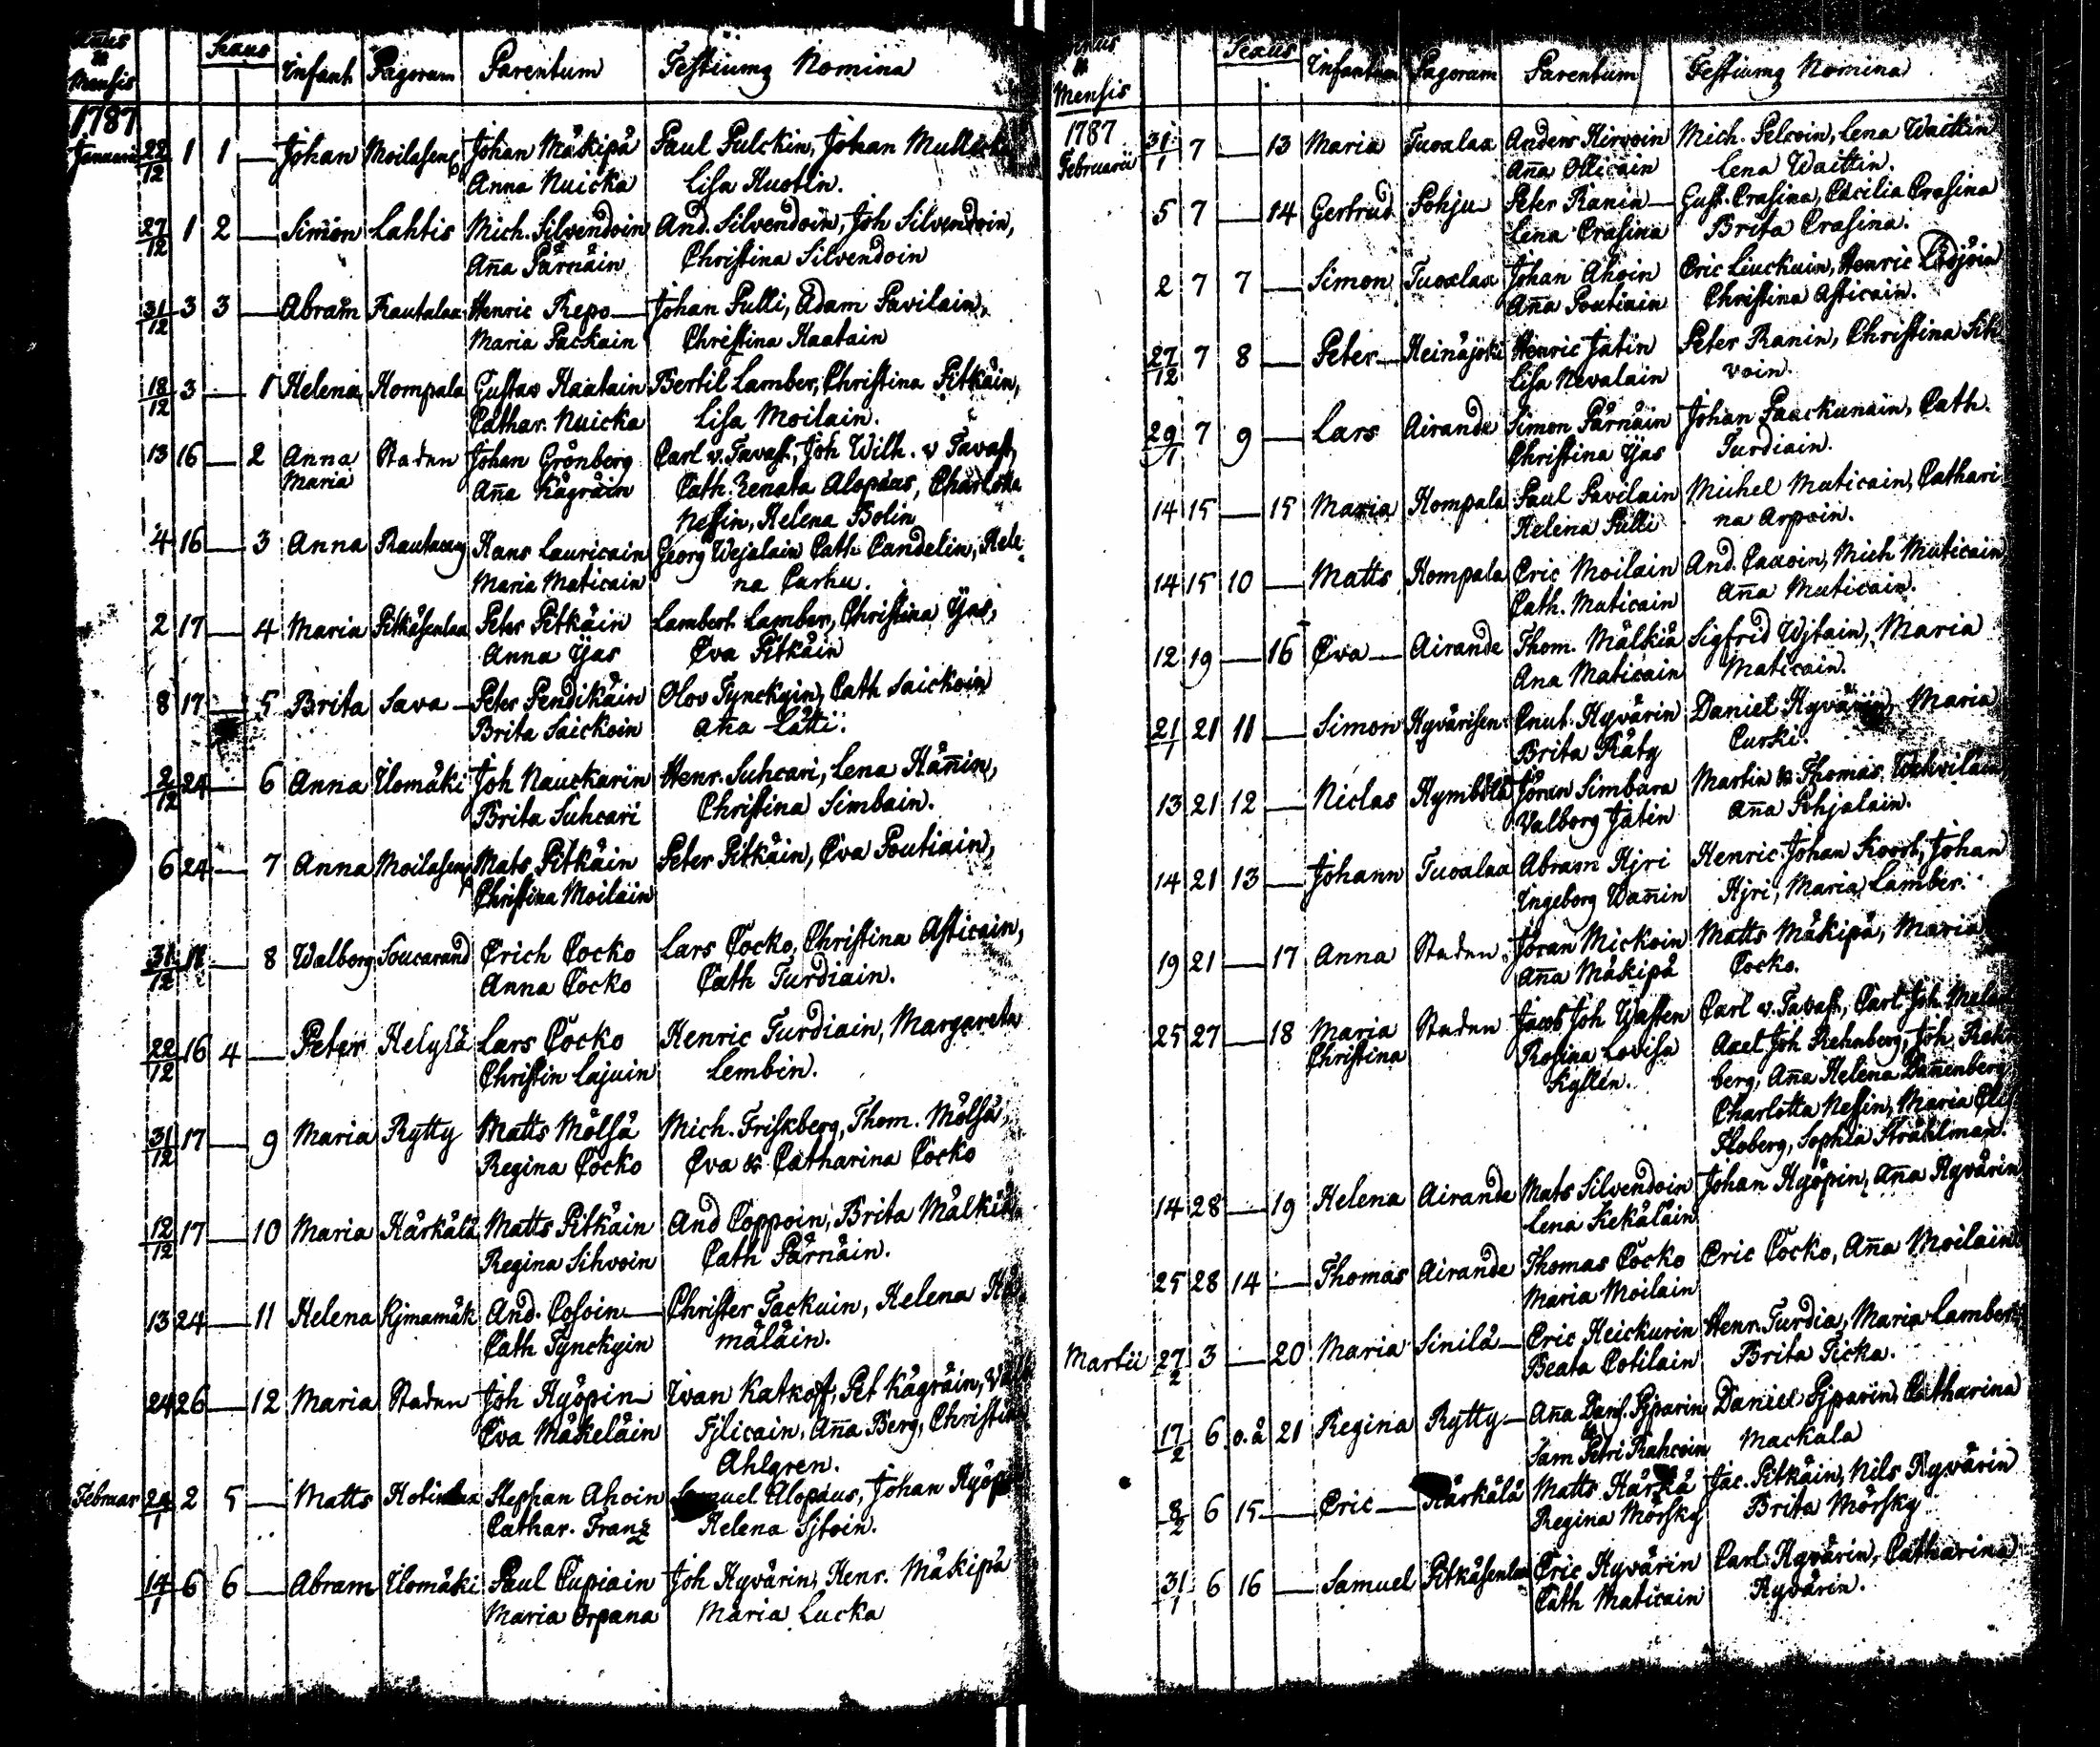 Mensis
Sexus
Infant Pagorum Parentum Testiumq Nomina
1787
Januarii 22/12 1 1 — Johan Moilasenp Johan Mäkipä Paul Pulckin, Johan
Anna Nuicka Lisa Huotin.
27/12 1 2 — Simon Lahtis Mich. Silvendoin And. Silvendoin, Joh Silvendoin,
Aña Pärnäin Christina Silvendoin
31/12 3 3 — Abram Rautalax Henric Repo — Johan Pulli, Adam Pavilain,
Maria Packain Christina Haatain
18/12 3 — 1 Helena Kompala Gustav Haatain Bertil Lamber, Christina Pitkäin,
Cathar. Nuicka Lisa Moilain.
13 16 — 2 Anna Staden Johan Grönberg Carl v. Tavast, Joh Wilh. v Tavast,
Maria Aña Kägräin Cath. Renata Alopäus, Charlotta
Nessin, Helena Bolin
4 16 — 3 Anna Hans Lauricain Georg Wejalain Cath Candelin, Hele
Maria Maticain na Carhu.
2 17 — 4 Maria Pitkäsenlax Peter Pitkäin Lambert Lamber, Christina Yjas,
Anna Yjas Eva Pitkäin
8 17 — 5 Brita Sava — Peter Pendikäin Olov Tynckyin, Cath Saickoin
Brita Saickoin Aña Lätti.
2/12 24 — 6 Anna Ilomäki Joh Nauckarin Henr. Suhcari, Lena Häñin,
Brita Suhcari Christina Simbain.
6 24 — 7 Anna Moilasenp Mats Pitkäin Peter Pitkäin, Eva Poutiain,
Christina Moilain
31/12 — 8 Walborg Soucarand Erich Cocko Lars Cocko, Christina Asticain,
Anna Cocko Cath Turdiain.
22/12 16 4 — Peter Helylä Lars Cocko Henric Turdiain, Margareta
Christin Lajuin Lembin.
31/12 17 — 9 Maria Rytty Matts Mölsä Mich. Friskberg, Thom. Mölsä,
Regina Cocko Eva & Catharina Cocko
12/12 17 — 10 Maria Härkälä Matts Pitkäin And Coppoin, Brita
Regina Sihvoin Cath Pärnäin.
13 24 — 11 Helena Kjmamäk And. Cosoin — Christer Tackuin, Helena
Cath Tynckyin mäläin.
24 26 — 12 Maria Staden Joh Hyöpin Ivan Katkoff, Pet Kägräin,
Eva Mäkeläin Tjlicain, Aña Berg, Christina
Ahlgren.
Februar 2 5 — Matts Stephan Ahoin Samuel Alopäus, Johan
Cathar. Franz Helena Sjtoin.
14/1 6 6 — Abram Ilomäki Paul Cupiain Joh Hyvärin, Henr. Mäkipä
Maria Orpana Maria Lucka
Mensis
Sexus
Infantum Pagorum Parentum Testiumq Nomina
1787
Februarii 31/1 7 — 13 Maria Tuoxlax Anders Hirvoin Mich. Pelcoin, Lena Waittin
Aña Ollicain Lena Waittin.
5 7 — 14 Gertrud Pohju Peter Ranin — Gust. Orasina, Cäcilia Orasina
Lena Orasina Brita Orasina.
2 7 7 — Simon Tuoxlax Johan Ahoin Eric Liuckuin, Henric
Aña Poutiain Christina Asticain.
27/12 7 8 — Peter — Heinäjoki Henric Jätin Peter Ranin, Christina Sih
Lisa Nevalain voin.
29/1 7 9 — Lars Airande Simon Pärnäin Johan Paackunain, Cath.
Christina Yjas Turdiain.
14 15 — 15 Maria Kompala Paul Pavilain Michel Muticain, Cathari
Helena Pulli na Arpoin.
14 15 10 — Matts Kompala Eric Moilain And. Caxoin, Mich Muticain
Cath. Muticain Aña Muticain.
12 19 — 16 Eva — Airande Thom. Mälkiä Sigfrid Wjtain, Maria
Ana Maticain Maticain.
21/1 21 11 — Simon Hyvärisen Cnut. Hyvärin Daniel Hyvärin, Maria
Brita Räty Curki.
13 21 12 — Niclas Kymbölä Jöran Simbura Martin & Thomas
Valborg Jätin Aña Pohjalain.
14 21 13 — Johann Tuoxlax Abram Kjri Henric Johan Koort, Johan
Ingeborg Wañin Kjri, Maria Lamber.
19 21 — 17 Anna Staden Jöran Mickoin Matts Mäkipä, Maria
Aña Mäkipä Cocko.
25 27 — 18 Maria Staden Jacob Joh Wasten Carl v. Tavast, Carl Joh
Christina Rosina Lovisa Axel Joh Rehnberg, Joh.
Kyllén. berg, Aña Helena Dañenberg,
Charlotta Nessin, Maria
Floberg, Sophia Stråhlman.
14 28 — 19 Helena Airande Mats Silvendoin Johan Hyöpin, Aña Hyvärin
Lena Kekäläin
25 28 14 — Thomas Airande Thomas Cocko Eric Cocko, Aña Moilain
Maria Moilain
Martii 27/2 3 — 20 Maria Sinilä — Eric Heickurin Henr. Turdia, Maria Lamber
Beata Cotilain Brita Ticka.
17/2 6 o.ä 21 Regina Rytty — Aña Dans. Pjparin Daniel Pjparin, Catharina
Sam Petri Rahcoin Mackala
8/2 6 15 — Eric — Härkälä Matts Härkä Jac. Pitkäin, Nils Hyvärin
Regina Mörsky Brita Mörsky
31/1 6 16 — Samuel Pitkäsenlax Eric Hyvärin Carl Hyvärin, Catharina
Cath Maticain Hyvärin.